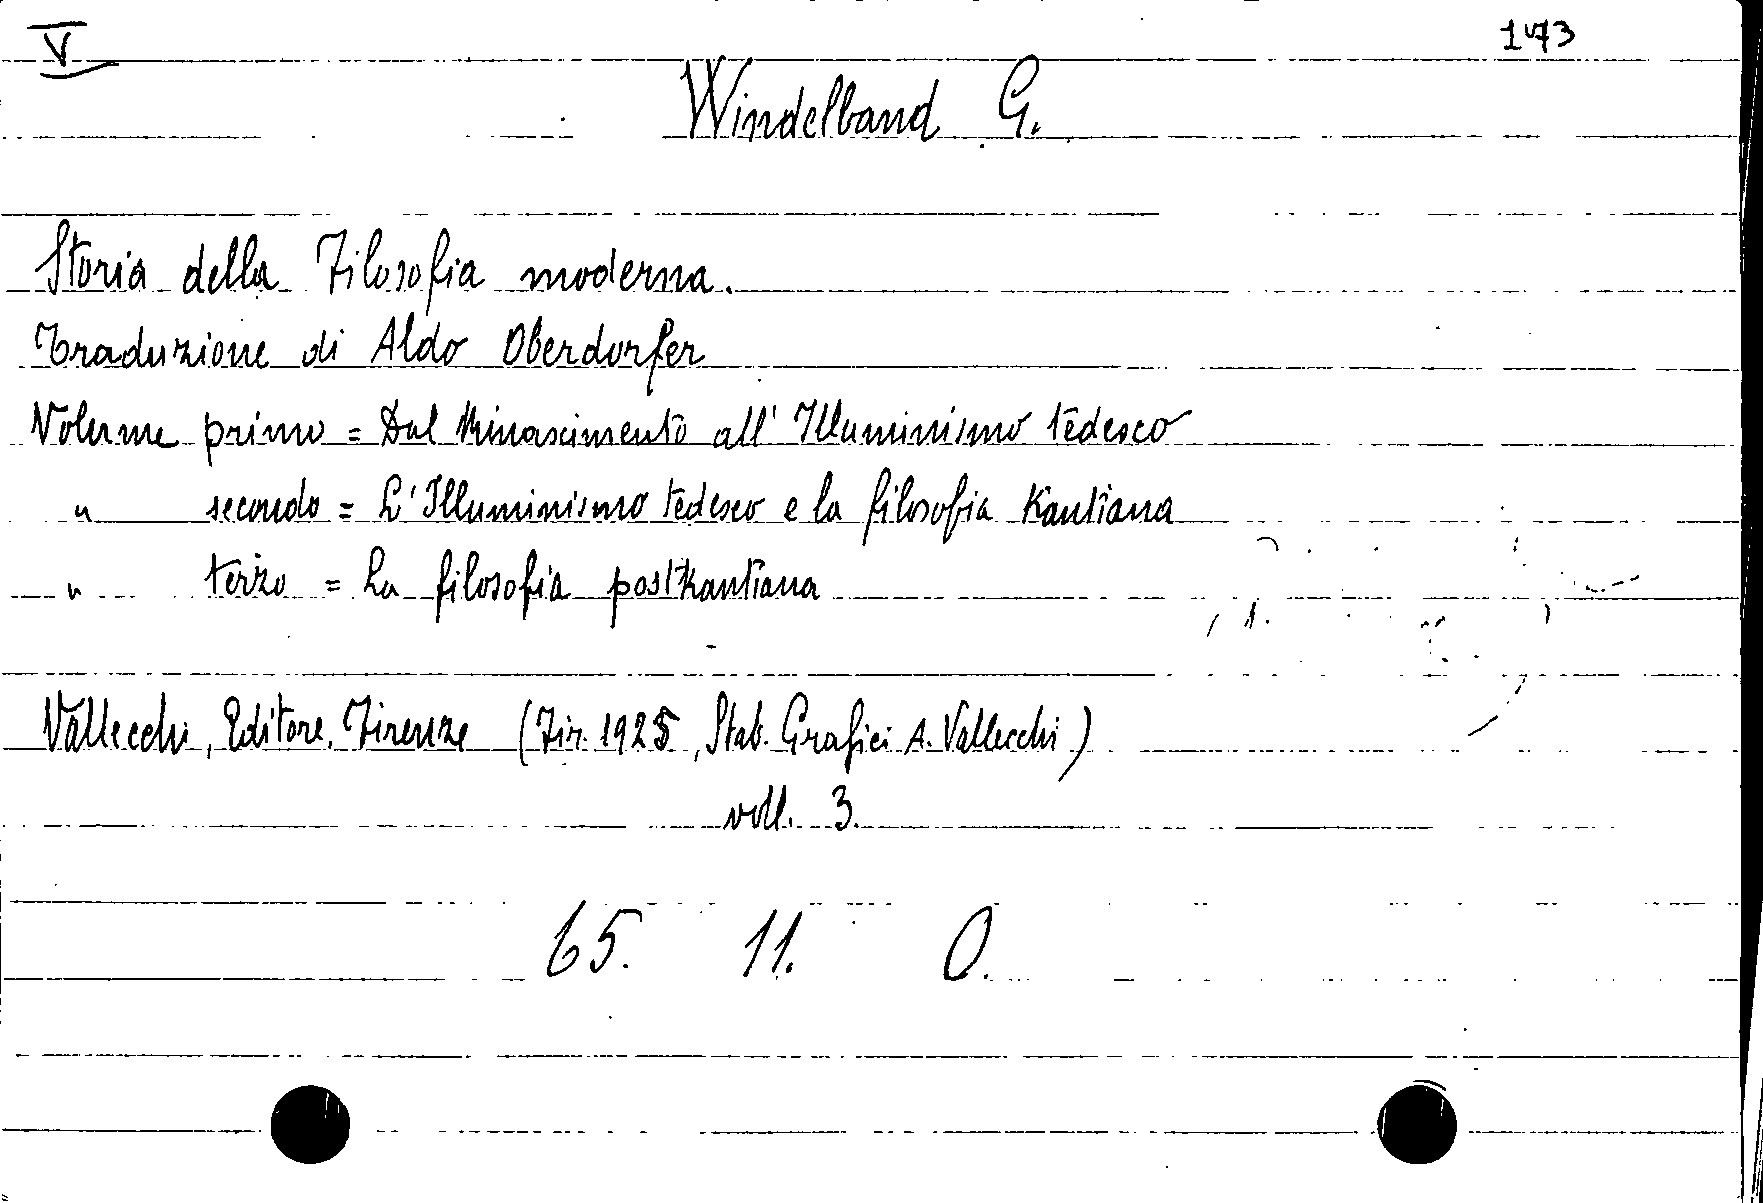 V
173
Windelband G.
Storia della Filosofia moderna.
Traduzione di Aldo Oberdorfer
Volume primo = Dal Rinascimento all' Illuminismo tedesco
" secondo = L'Illuminismo tedesco e la filosofia Kantiana
" terzo = La filosofia postkantiana
Vallecchi, Editore, Firenze (Fir. 1925, Stab. Grafici A. Vallecchi)
voll. 3.
65. 11. 0.